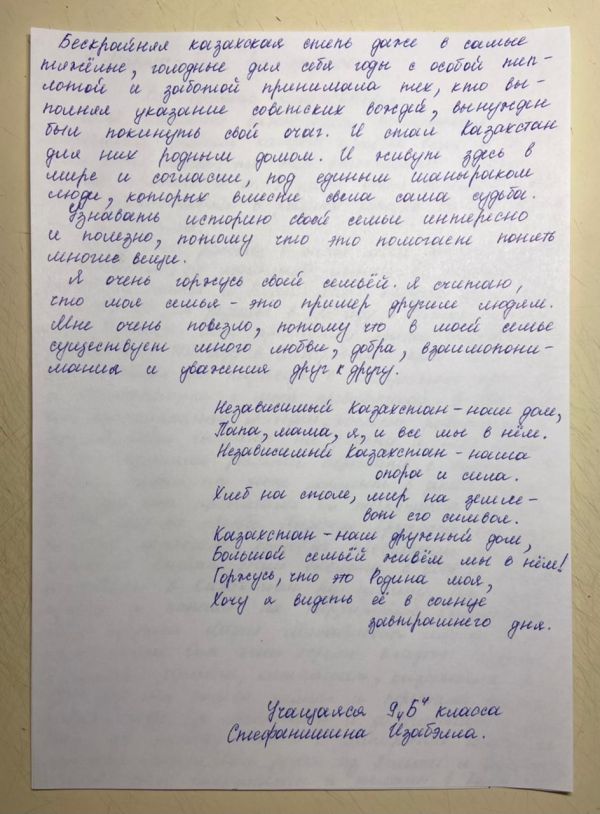 Бескрайняя казахская степь даже в самые
тяжёлые, голодные для себя годы с особой теп-
лотой и заботой принимала тех, кто вы-
полняя указание советских вождей, вынужден
был покинуть свой очаг. И стал Казахстан
для них родным домом. И живут здесь в
мире и согласии, под единым шаныраком
люди, которых вместе свела сама судьба.
Узнавать историю своей семьи интересно
и полезно, потому что это помогает понять
многие вещи.
Я очень горжусь своей семьёй. Я считаю,
что моя семья - это пример другим людям.
Мне очень повезло, потому что в моей семье
существует много любви, добра, взаимопони-
мания и уважения друг к другу.
Независимый Казахстан - наш дом,
Папа, мама, я, и все мы в нём.
Независимый Казахстан - наша
опора и сила.
Хлеб на столе, мир на земле -
вот его символ.
Казахстан - наш дружный дом,
Большой семьёй живём мы в нём!
Горжусь, что это Родина моя,
Хочу я видеть её в солнце
завтрашнего дня.
Учащаяся 9 "Б" класса
Стефанишина Изабэлла.